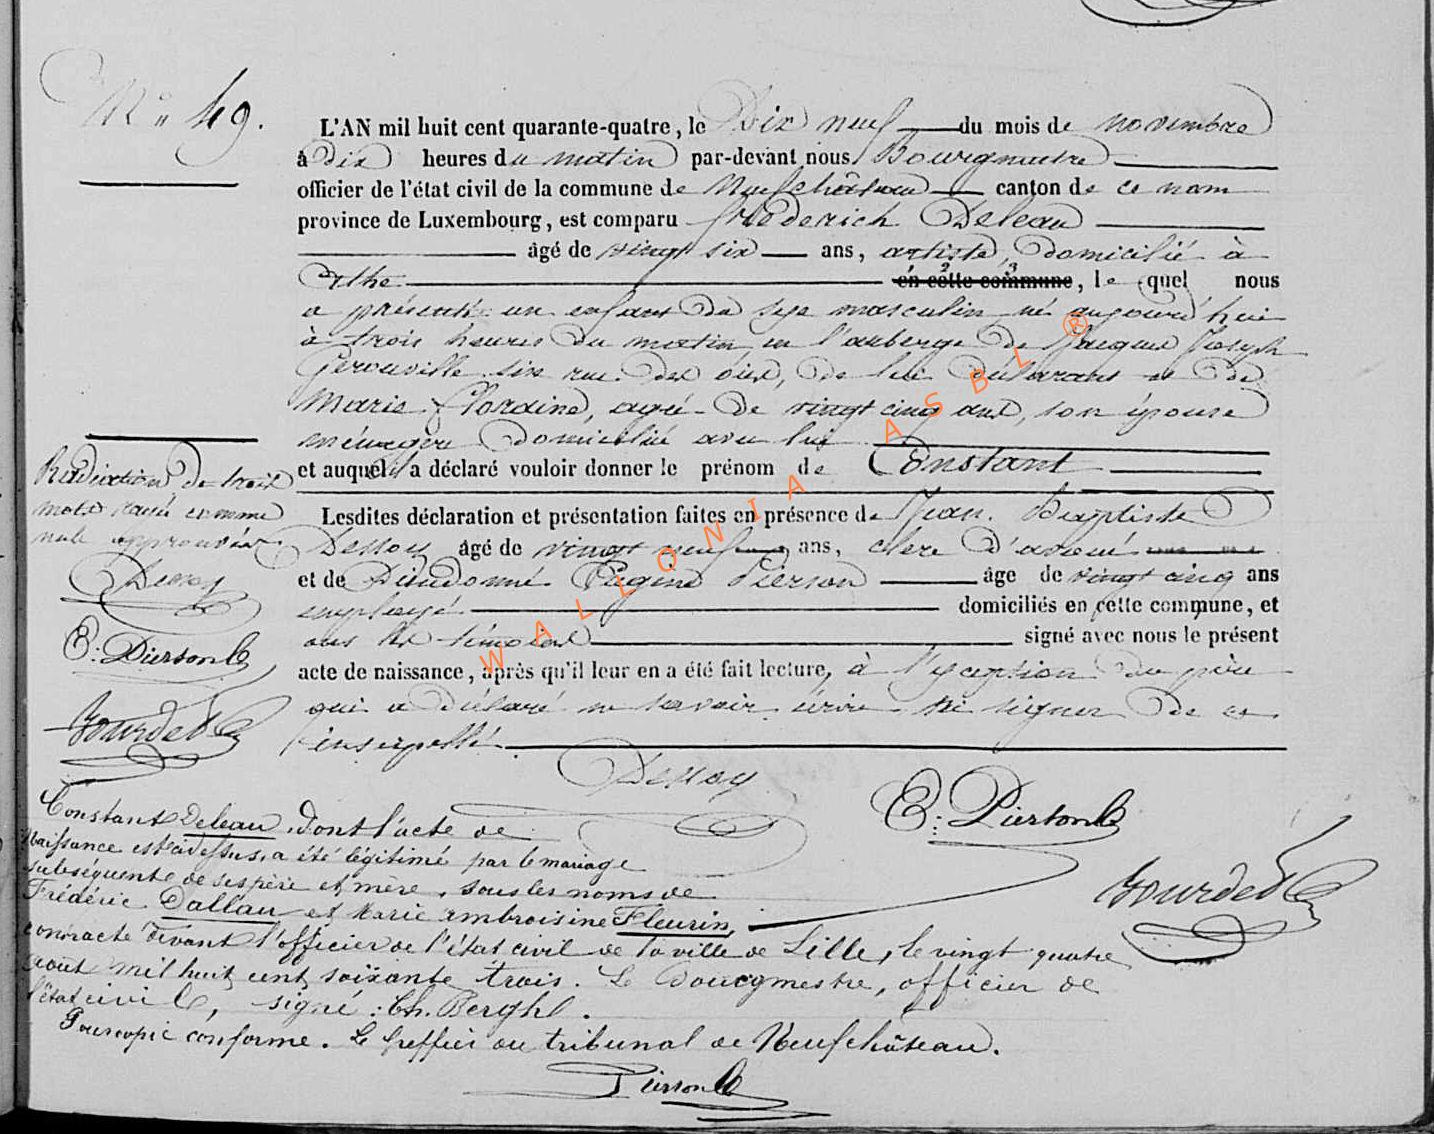 N° 49.
L'AN mil huit cent quarante-quatre, le Dix neuf du mois de novembre
à dix heures du matin par-devant nous Bourgmestre
officier de l'état civil de la commune de Neufchâteau canton de ce nom
province de Luxembourg, est comparu frederich Deleau
âgé de vingt six ans, artiste, domicilié à
Ethe en cette commune, le quel nous
a présenté un enfant du sexe masculin né aujourd'hui
à trois heures du matin en l'auberge de Jacques Joseph
Gerouville sise rue des oies, de lui déclarant et de
Marie floraine, agée de vingt cinq ans, son épouse
ménagère domiciliée avec lui
et auquel il a déclaré vouloir donner le prénom de Constant
Radiation de trois
mots rayés comme
nuls approuvée
Dessoy
E: Pierson
Bourdet
Lesdites déclaration et présentation faites en présence de Jean Baptiste
Dessoy âgé de vingt neuf ans, clerc d'avoué
et de Dieudonné Eugène Pierson âge de vingt cinq ans
employé domiciliés en cette commune, et
ont les témoins signé avec nous le présent
acte de naissance, après qu'il leur en a été fait lecture, à l'exception du père
qui a déclaré ne savoir écrire ni signer de ce
interpellé.
Dessoy
E: Pierson
Bourdet
Constant Deleau, dont l'acte de
Naissance est cidessus, a été légitimé par le mariage
subséquente de ses père et mère, sous les noms de
Frédéric Dallau et Marie ambroisine Fleurin,
contracté devant l'officier de l'état civil de la ville de Lille, le vingt quatre
août mil huit cent soixante trois. Le Bourgmestre, officier de
l'état civil, signé: Ch. Berghl.
Pour copie conforme. Le Greffier du tribunal de Neufchâteau.
Pierson
WALLONIA ASBL ®